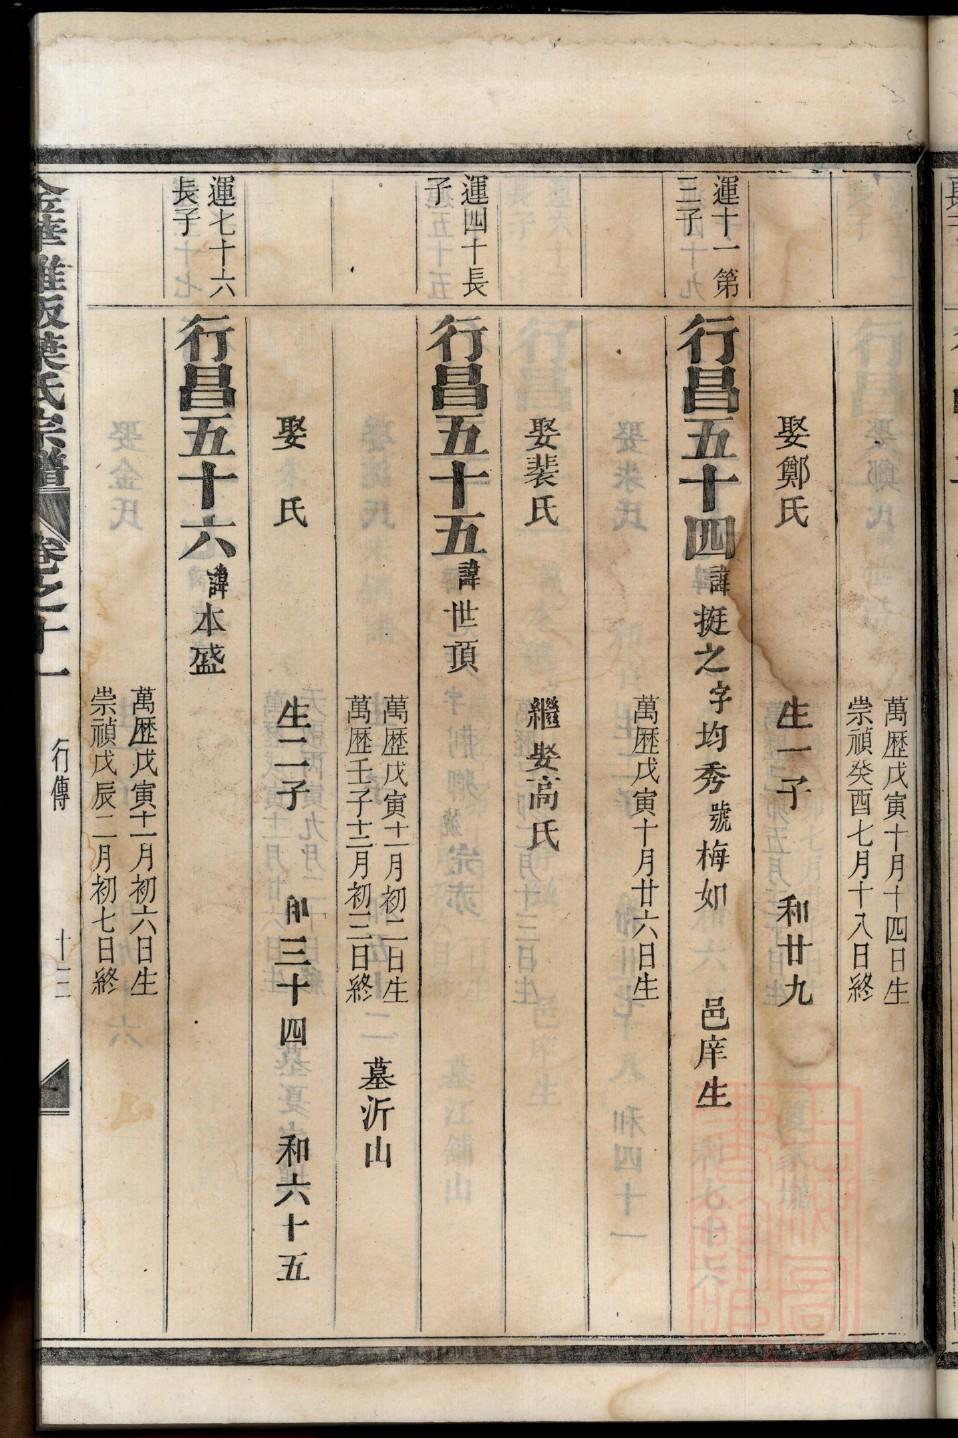 萬歷戊寅十月十四日生
崇禎癸酉七月十八日終
娶鄭氏
生一子
和廿九
運十一第
三子
行昌五十四諱挺之字均秀號梅如 邑庠生
萬歷戊寅十月廿六日生
娶裴氏
繼娶高氏
運四十長
子
行昌五十五諱世頂
萬歷戊寅十一月初二日生
萬歷壬子十二月初三日終
墓沂山
娶 氏
生二子
和三十四
和六十五
運七十六
長子
行昌五十六諱本盛
萬歷戊寅十一月初六日生
崇禎戊辰二月初七日終
葉氏宗譜 卷之十一 行傳 十三